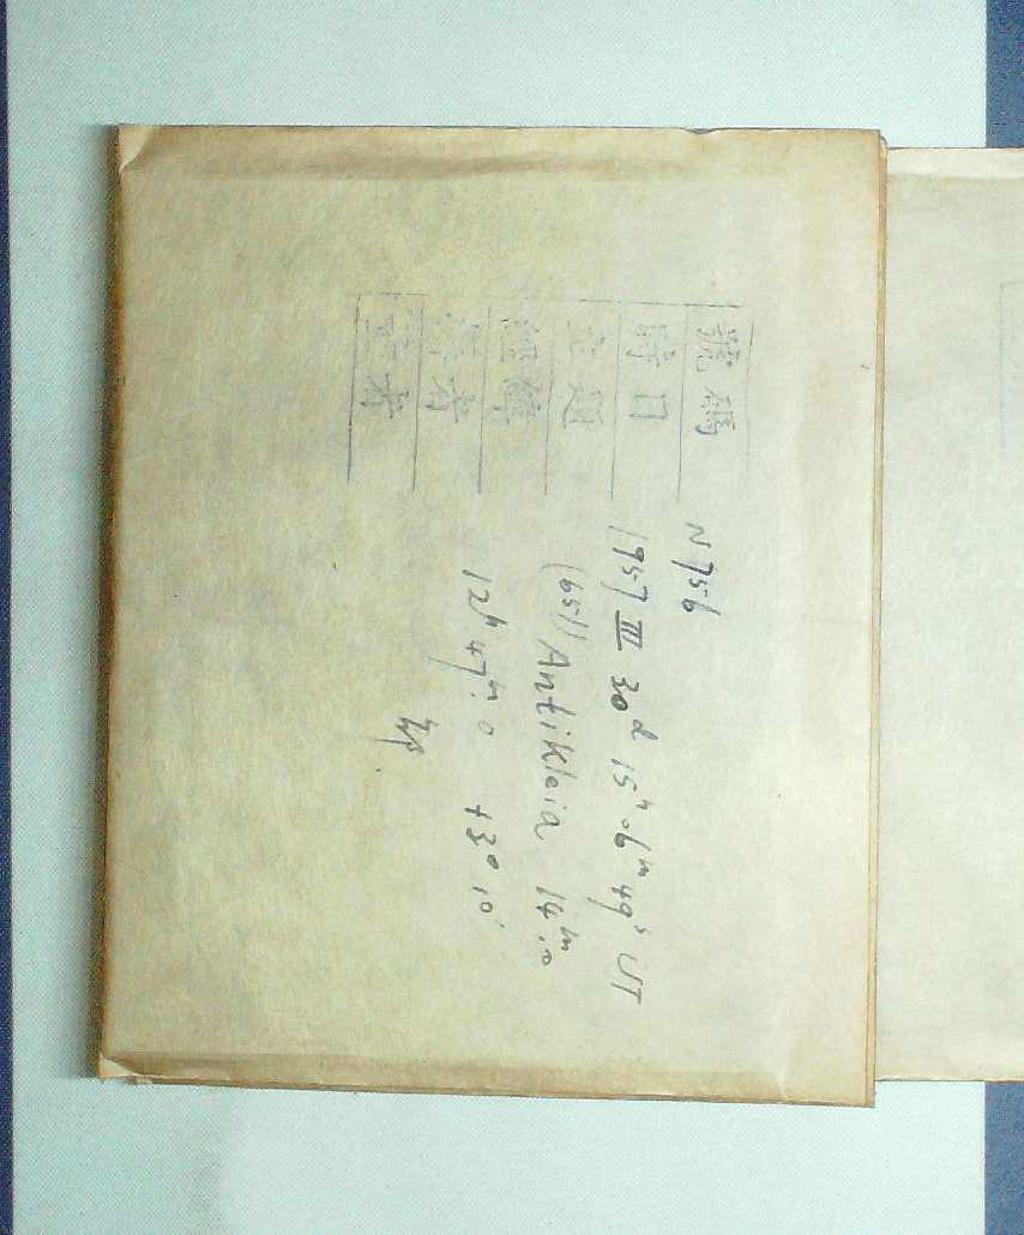 號碼 N 756
時日 1957 III 30ᵈ 15ʰ 06ᵐ 49ˢ UT
定題 (651) Antikleia 14ᵐ.0
經緯 12ʰ 47ᵐ.0 +3° 10'
者
者